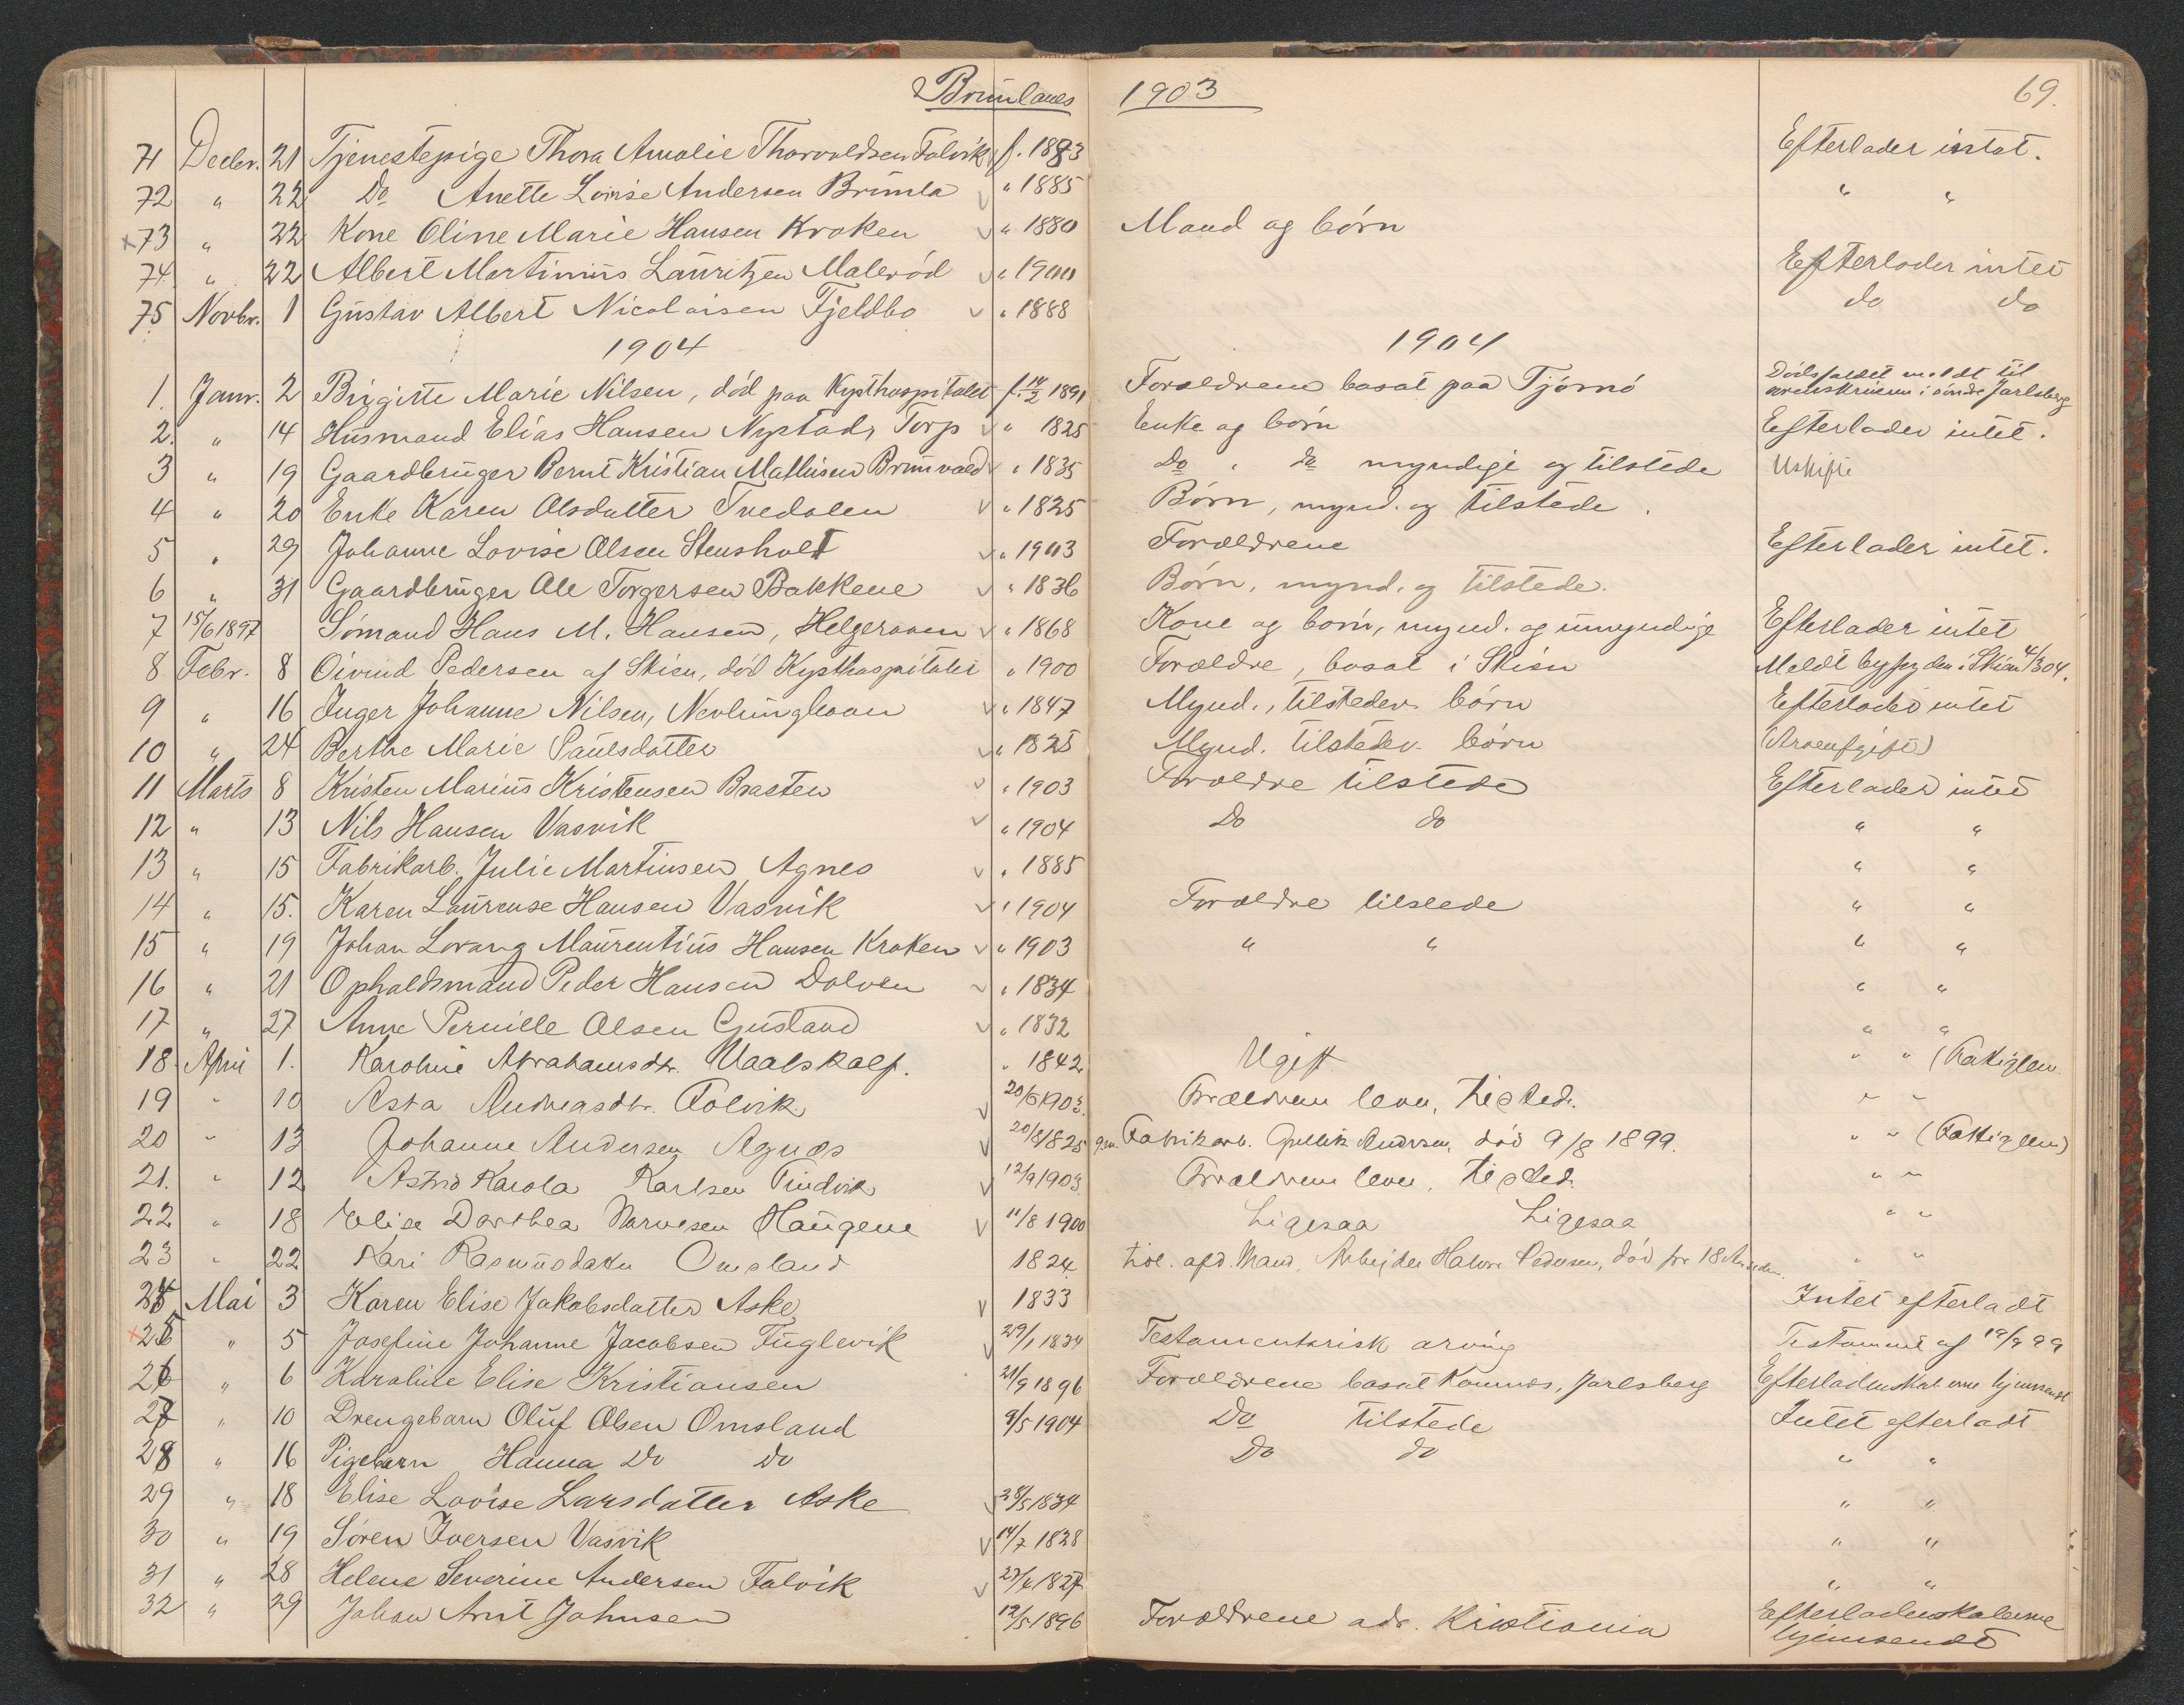 Brunlanes 1903 69.
71 Decbr. 21 Tjenestepige Thora Amalie Thorvaldsen Falvik f. 1883 Efterlader intet.
72 " 22 Do Anette Lovise Andersen Brunla " 1885 " "
73 " 22 Kone Oline Marie Hansen Kroken " 1880 Mand og börn
74 " 22 Albert Martinius Lauritzen Maleröd " 1900 Efterlader intet
75 Novbr. 1 Gustav Albert Nicolaisen Fjeldbo " 1888 do do
1904 1904
1. Janr. 2 Brigitte Marie Nilsen, död paa Kysthospitalet f. 14/2 1891 Forældrene bosat paa Tjömö Dödsfaldet meldt til sorenskriveren i söndre Jarlsberg
2. " 14 Husmand Elias Hansen Nystad, Torp " 1825 Enke og börn Efterlader intet.
3 " 19 Gaardbruger Bernt Kristian Mathisen Brunvald " 1835 Do " do myndige og tilstede Uskifte
4 " 20 Enke Karen Olsdatter Tvedalen " 1825 Börn, mynd. og tilstede.
5 " 29 Johanne Lovise Olsen Stensholt " 1903 Forældrene Efterlader intet.
6 " 31 Gaardbruger Ole Torgersen Bakkene " 1836 Börn, mynd. og tilstede.
7 15/6 1897 Sömand Hans M. Hansen, Helgeroaen " 1868 Kone og börn, mynd. og umyndige Efterlader intet
8 Febr. 8 Öivind Pedersen af Skien, död Kysthospitalet " 1900 Forældre, bosat i Skien Meldt byfogden i Skien 4/3 04.
9 " 16 Inger Johanne Nilsen, Nevlunghavn " 1847 Mynd., tilstedev. börn Efterlader intet
10 " 24 Berthe Marie Paulsdatter " 1825 Mynd. tilstedev. börn (Arveafgift)
11 Marts 8 Kristen Marius Kristensen Braaten " 1903 Forældre tilstede Efterlader intet
12 " 13 Nils Hansen Vasvik " 1904 Do do " "
13 " 15 Fabrikarb. Julie Martinsen Agnes " 1885 " "
14 " 15. Karen Laurense Hansen Vasvik " 1904 Forældre tilstede " "
15 " 19 Johan Lorang Maurentius Hansen Kroken " 1903 " " " "
16 " 21 Opholdsmand Peder Hansen Dolven " 1834 " "
17 " 27 Anne Pernille Olsen Gusland " 1832 " "
18 April 1. Karoline Abrahamsdtr. Vaalskalf. " 1842 Ugift " " (Fattiglem
19 " 10 Asta Andreasdtr. Falvik. 20/6 1903. Forældrene lever, tilsted. " "
20 " 13 Johanne Andersen Agnes 20/8 1825 gm. Fabrikarb. Gullik Andersen, död 9/8 1899. " " (Fattiglem)
21. " 12 Astrid Karola Karlsen Tindvik 12/9 1903 Forældrene lever, tilsted. " "
22 " 18 Elise Dorthea Narvesen Haugene 11/8 1900 Ligesaa Ligesaa " "
23 " 22 Kari Rasmusdatter Omsland 1824. afd. Mand, Arbejder Halvor Pedersen, död for 18 Aar siden. " "
24 Mai 3 Karen Elise Jakobsdatter Aske 1833 Intet efterladt
25 " 5 Josefine Johanne Jacobsen Fuglevik 29/1 1834 Testamentarisk arving Testament af 19/9 99
26 " 6 Karoline Elise Kristiansen 21/9 1896 Forældrene bosat Jarlsberg hjemsendt
27 " 10 Drengebarn Oluf Olsen Omsland 9/5 1904 Do tilstede Intet efterladt
28 " 16 Pigebarn Hanna Do Do Do do " "
29 " 18 Elise Lovise Larsdatter Aske 28/5 1834 " "
30 " 19 Sören Iversen Vasvik 14/7 1828 " "
31 " 28 Helene Severine Andersen Falvik 27/4 1827 " "
32 " 29 Johan Arnt Johnsen 12/5 1896 Forældrene adr. Kristiania Efterladenskaberne hjemsendt